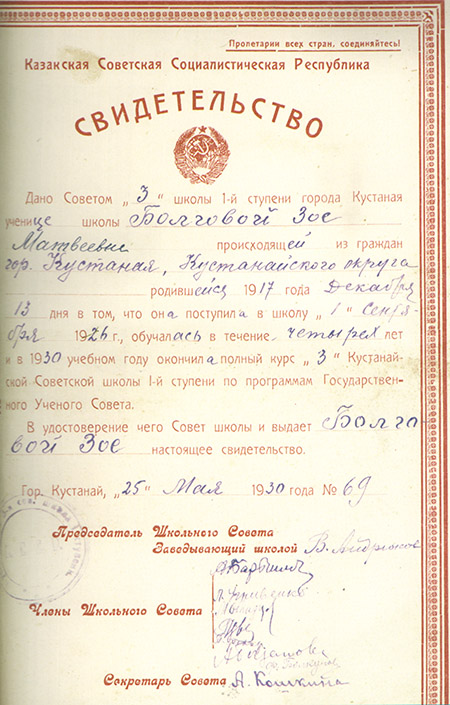 Пролетарии всех стран, соединяйтесь!
Казакская Советская Социалистическая Республика
СВИДЕТЕЛЬСТВО
Дано Советом „3" школы 1-й ступени города Кустаная
ученице школы Болговой Зое
Матвеевне происходящей из граждан
гор. Кустаная, Кустанайского округа
родившейся 1917 года Декабря
13 дня в том, что она поступила в школу „1" Сентя-
бря 1926 г., обучалась в течение четырех лет
и в 1930 учебном году окончила полный курс „3" Кустанай-
ской Советской школы 1-й ступени по программам Государствен-
ного Ученого Совета.
В удостоверение чего Совет школы и выдает Болго
вой Зое настоящее свидетельство.
Гор. Кустанай, „25" Мая 1930 года № 69
Председатель Школьного Совета
Заведывающий школой В.
Члены Школьного Совета
Секретарь Совета А. Кошкина